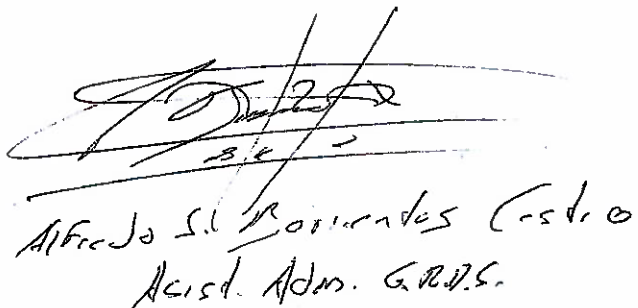 Alfredo S. Barrientos Castro
Asist. Adm. G.R.D.S.